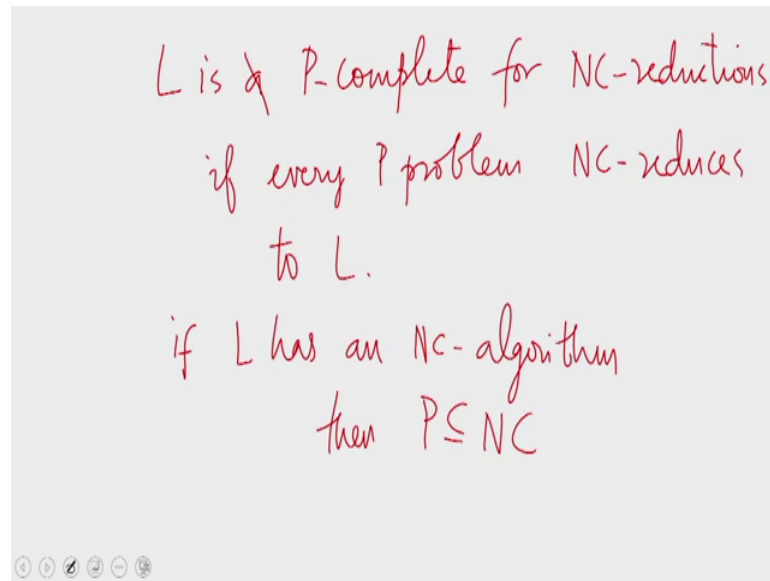 L is P-complete for NC-reductions
if every P problem NC-reduces
to L.
if L has an NC-algorithm
then P ⊆ NC